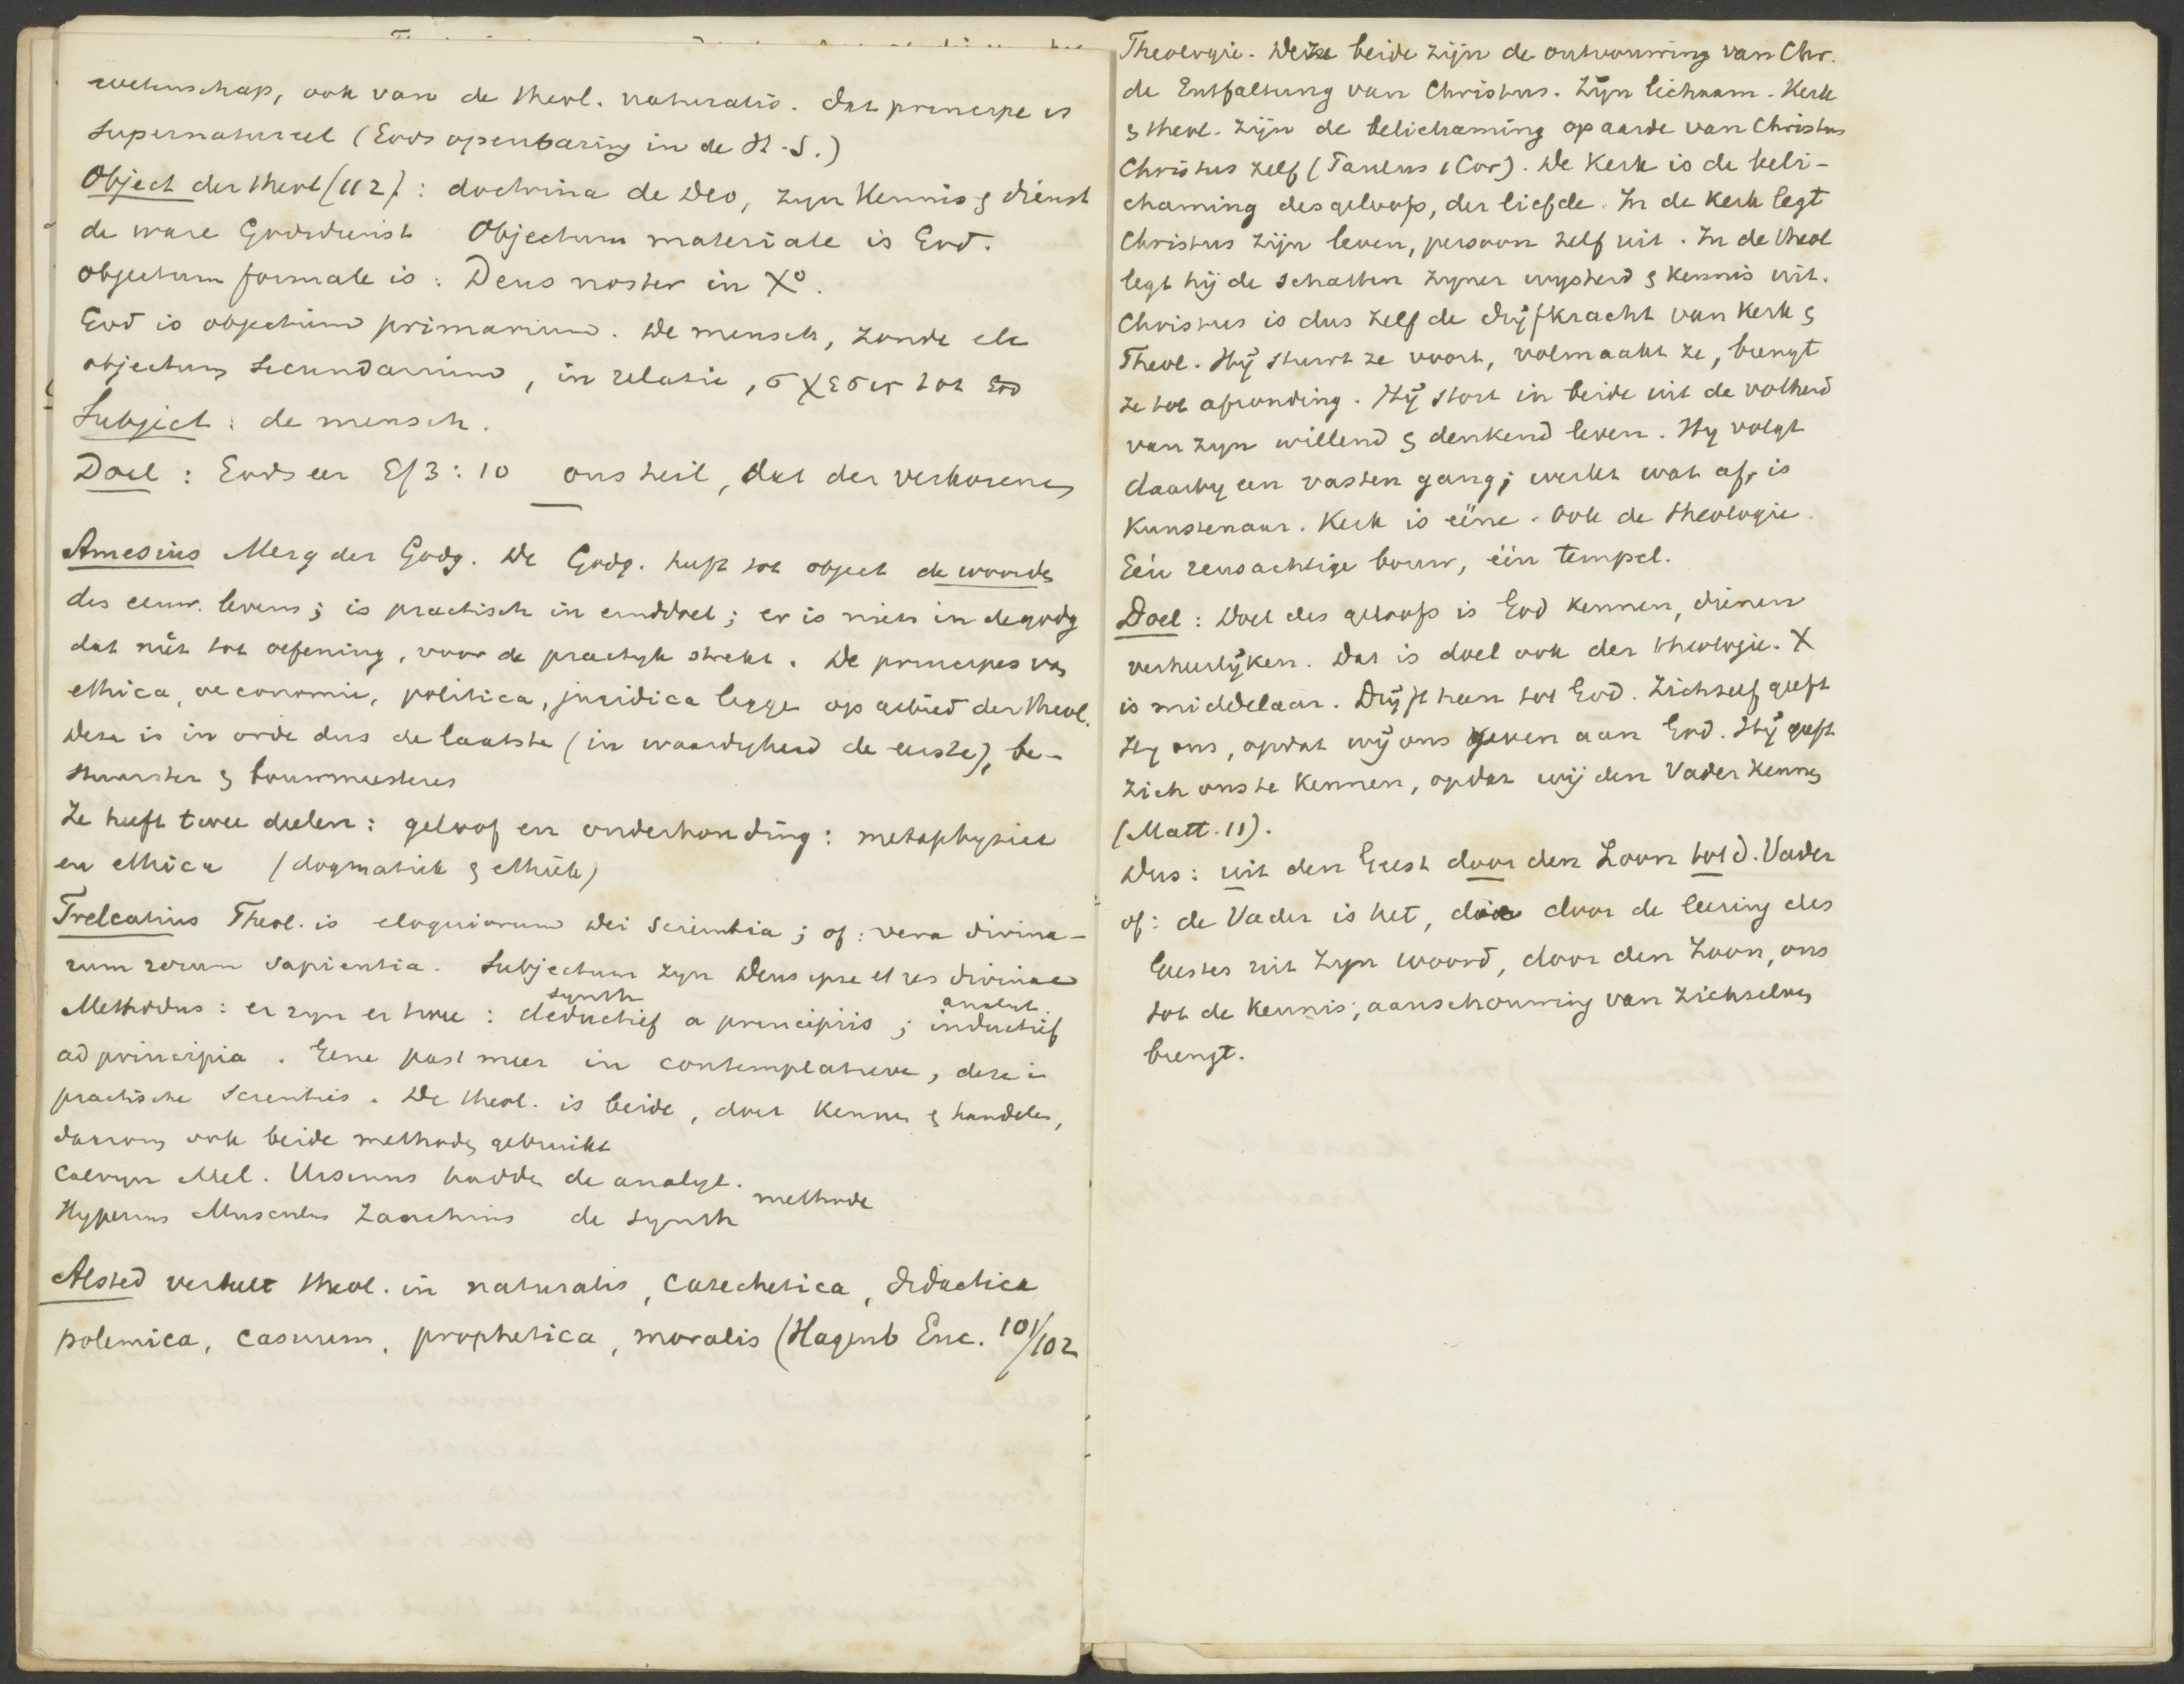 wetenschap, ook van de theol. naturalis. dat principe is
supernatureel (Gods openbaring in de H. S.)
Object der theol (112): doctrina de Deo, zyn kennis & dienst
de ware Godsdienst Objectum materiale is God.
objectum formale is: Deus noster in Xo.
God is objectum primarium. De mensch, zonde etc
objectum secundarium, in relatie, σχεσις tot God
Subject: de mensch.
Doel: Gods eer Ef 3:10 ons heil, dat der verkorenen
Amesius Merg der Godg. De Godg. heeft tot object de woorden
des eeuw. levens; is practisch in einddoel; er is niets in de godg
dat niet tot oefening, voor de practyk strekt. De principes van
ethica, oeconomie, politica, juridica liggen op gebied der theol.
Deze is in orde dus de laatste (in waardigheid de eerste), be-
stuurster & bouwmeesteres
Ze heeft twee deelen: geloof en onderhouding: metaphysica
en ethica (dogmatiek & ethiek)
Trelcatius Theol. is eloquiorum Dei scientia; of: vera divina-
rum rerum sapientia. Subjectum zyn Deus ipse et res divinae
synth analyt.
Methodus: er zyn er twee: deductief a principiis; inductief
ad principia. Eene past meer in contemplatieve, deze in
practische scienties. De theol. is beide, doet kennen & handelen,
daarom ook beide methoden gebruikt
Calvyn Mel. Ursinus hadden de analyt.
methode
Hyperius Musculus Zanchius de synth
Alsted verdeelt theol. in naturalis, catechetica, didactica
polemica, casuum, prophetica, moralis (Hagenb Enc. 101/102
Theologie. Deze beide zijn de ontvouwing van Chr.
de Entfaltung van Christus. Zijn lichaam. Kerk
& theol. zijn de belichaming op aarde van Christus
Christus zelf (Paulus 1 Cor). De Kerk is de beli-
chaming des geloofs, der liefde. In de Kerk legt
Christus zijn leven, persoon zelf uit. In de theol
legt hij de schatten zyner wysheid & kennis uit.
Christus is dus zelf de drijfkracht van Kerk &
Theol. Hij stuwt ze voort, volmaakt ze, brengt
ze tot afronding. Hij stort in beide uit de volheid
van zyn willend & denkend leven. Hy volgt
daarby een vasten gang; werkt wat af, is
Kunstenaar. Kerk is ééne. Ook de theologie.
Eén reusachtige bouw, één tempel.
Doel: Doel des geloofs is God kennen, dienen
verheerlijken. Dat is doel ook der theologie. X
is middelaar. Drijft heen tot God. Zichzelf geeft
Hy ons, opdat wij ons geven aan God. Hij geeft
zich ons te kennen, opdat wij den Vader kennen
(Matt. 11).
Dus: uit den Geest door den Zoon tot d. Vader
of: de Vader is het, die door de leering des
Geestes uit Zyn woord, door den Zoon, ons
tot de kennis, aanschouwing van Zichzelven
brengt.